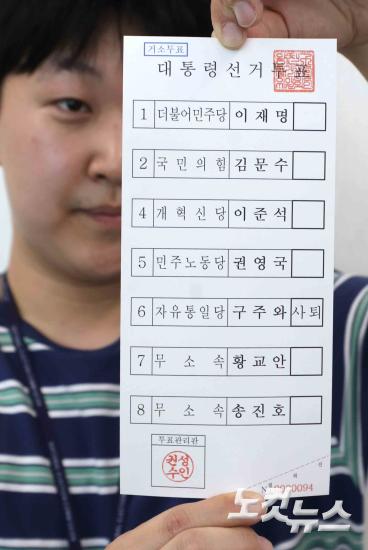 거소투표
대통령선거투표
1 더불어민주당 이재명
2 국민의힘 김문수
4 개혁신당 이준석
5 민주노동당 권영국
6 자유통일당 구주와 사퇴
7 무소속 황교안
8 무소속 송진호
투표관리관
권성
수인
0000094
노컷뉴스